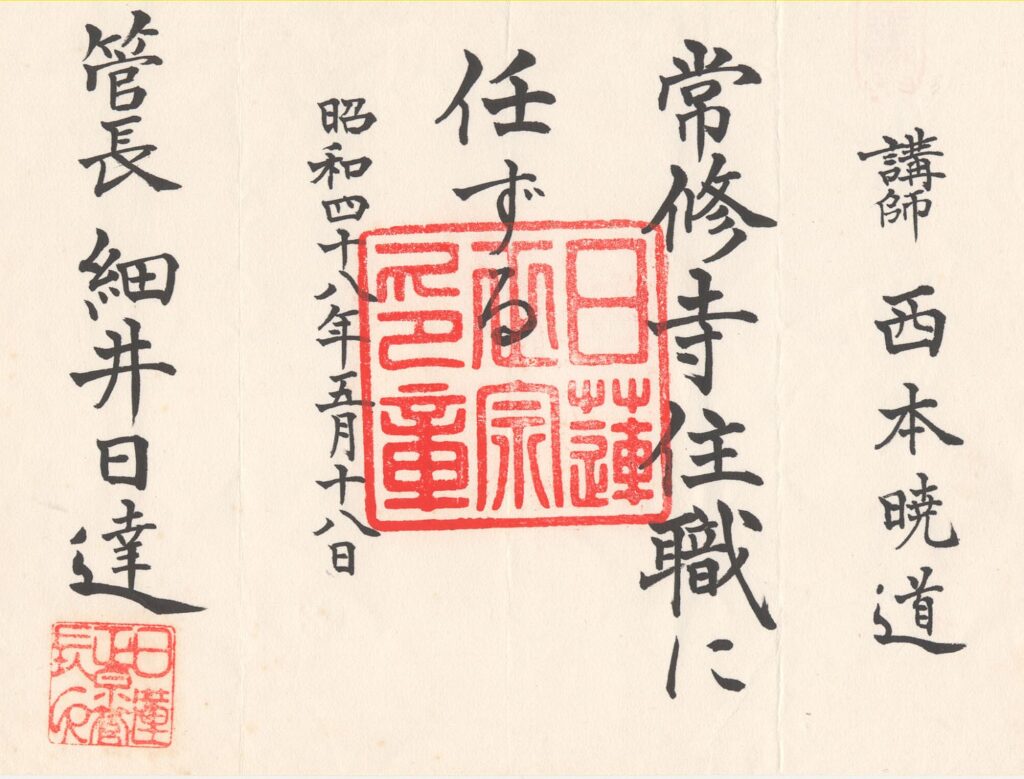 講師 西本暁道
常修寺住職に
任ずる
昭和四十八年五月十八日
管長 細井日達
日蓮
正宗
印章
日蓮
正宗管
長印